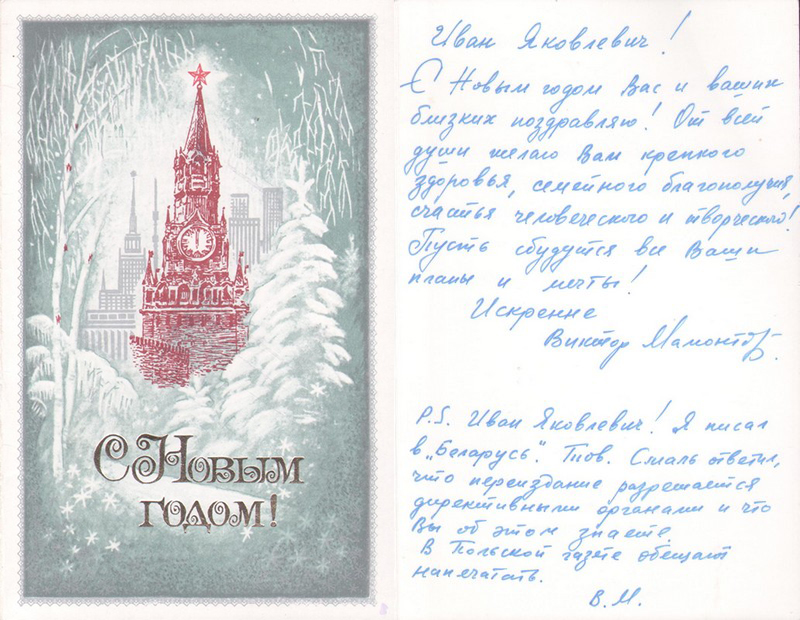 С Новым
годом!
Иван Яковлевич!
С Новым годом Вас и ваших
близких поздравляю! От всей
души желаю Вам крепкого
здоровья, семейного благополучия,
счастья человеческого и творческого!
Пусть сбудутся все Ваши
планы и мечты!
Искренне
Виктор Мамонтов.
P.S. Иван Яковлевич! Я писал
в „Беларусь". Тов. Смаль ответил,
что переиздание разрешается
директивными органами и что
Вы об этом знаете.
В Польской газете обещают
напечатать.
В.М.